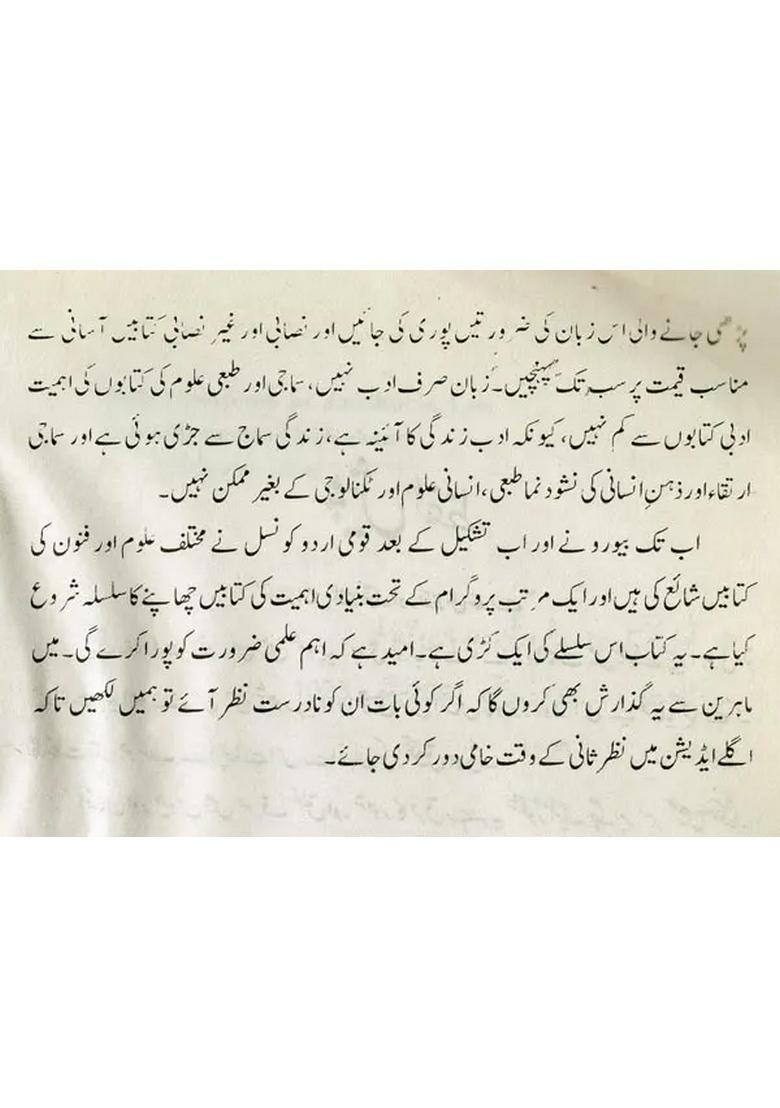 پڑھی جانے والی اس زبان کی ضرورتیں پوری کی جائیں اور نصابی اور غیر نصابی کتابیں آسانی سے
مناسب قیمت پر سب تک پہنچیں۔ زبان صرف ادب نہیں، سماجی اور طبعی علوم کی کتابوں کی اہمیت
ادبی کتابوں سے کم نہیں، کیونکہ ادب زندگی کا آئینہ ہے، زندگی سماج سے جڑی ہوئی ہے اور سماجی
ارتقاء اور ذہنِ انسانی کی نشوونما طبعی، انسانی علوم اور ٹکنالوجی کے بغیر ممکن نہیں۔
اب تک بیورو نے اور اب تشکیل کے بعد قومی اردو کونسل نے مختلف علوم اور فنون کی
کتابیں شائع کی ہیں اور ایک مرتب پروگرام کے تحت بنیادی اہمیت کی کتابیں چھاپنے کا سلسلہ شروع
کیا ہے۔ یہ کتاب اس سلسلے کی ایک کڑی ہے۔ امید ہے کہ اہم علمی ضرورت کو پورا کرے گی۔ میں
ماہرین سے یہ گذارش بھی کروں گا کہ اگر کوئی بات ان کو نادرست نظر آئے تو ہمیں لکھیں تاکہ
اگلے ایڈیشن میں نظر ثانی کے وقت خامی دور کر دی جائے۔